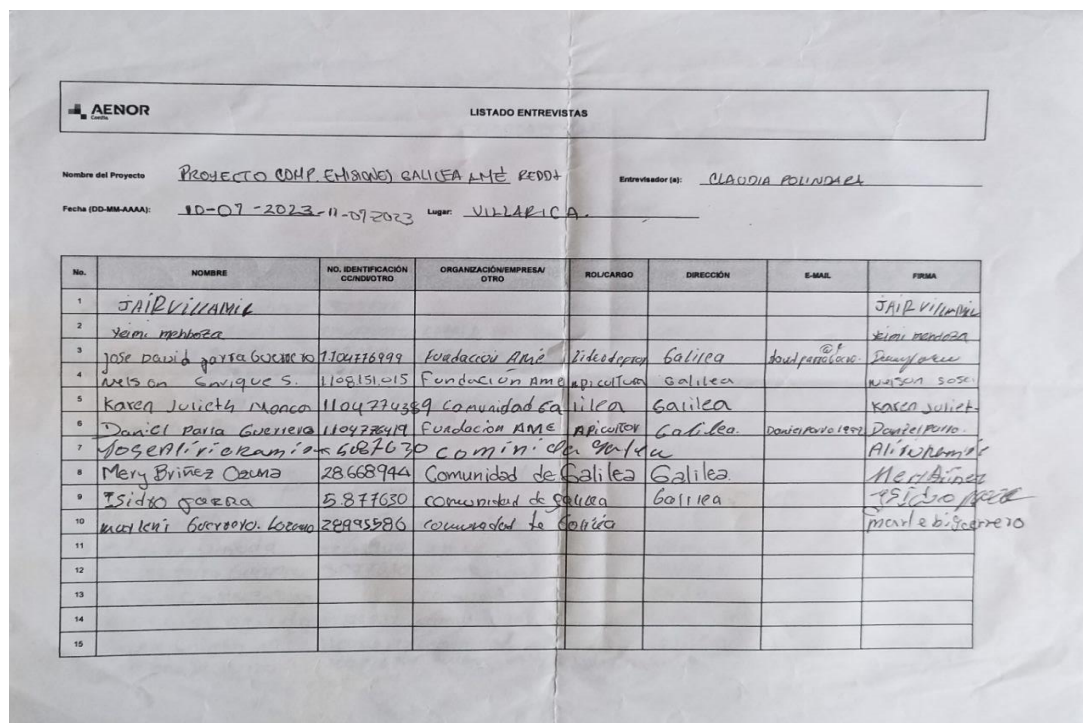 AENOR
LISTADO ENTREVISTAS
Nombre del Proyecto PROYECTO COMP. EMISIONES GALILEA AMÉ REDD+ Entrevisador (a): CLAUDIA POLINDARA
Fecha (DD-MM-AAAA): 10-07-2023-11-07-2023 Lugar: VILLARICA.
No. NOMBRE NO. IDENTIFICACIÓN CC/NDI/OTRO ORGANIZACIÓN/EMPRESA/ OTRO ROL/CARGO DIRECCIÓN E-MAIL FIRMA
1 JAIR VILLAMIL JAIR VILLAMIL
2 Yeimi mendoza Yeimi mendoza
3 Jose David parra Guerrero 1.104776999 Fundación Amé Galilea
4 Nelson Enrique S. 1108151.015 Fundación Ame apicultura Galilea Nelson sose.
5 Karen Julieth Monca 1104774389 Comunidad Galilea Galilea Karen Juliet
6 Daniel Parra Guerrero 1104776419 Fundación AME Apicultor Galilea. Daniel Parra.
7 5687630
8 Mery Briñez 28.668944 Comunidad de Galilea Galilea.
9 Isidro parra 5.877630 comunidad de galilea Galilea
10 marleni Guerrero. Lozano 28995586 comunidad de Galilea
11
12
13
14
15